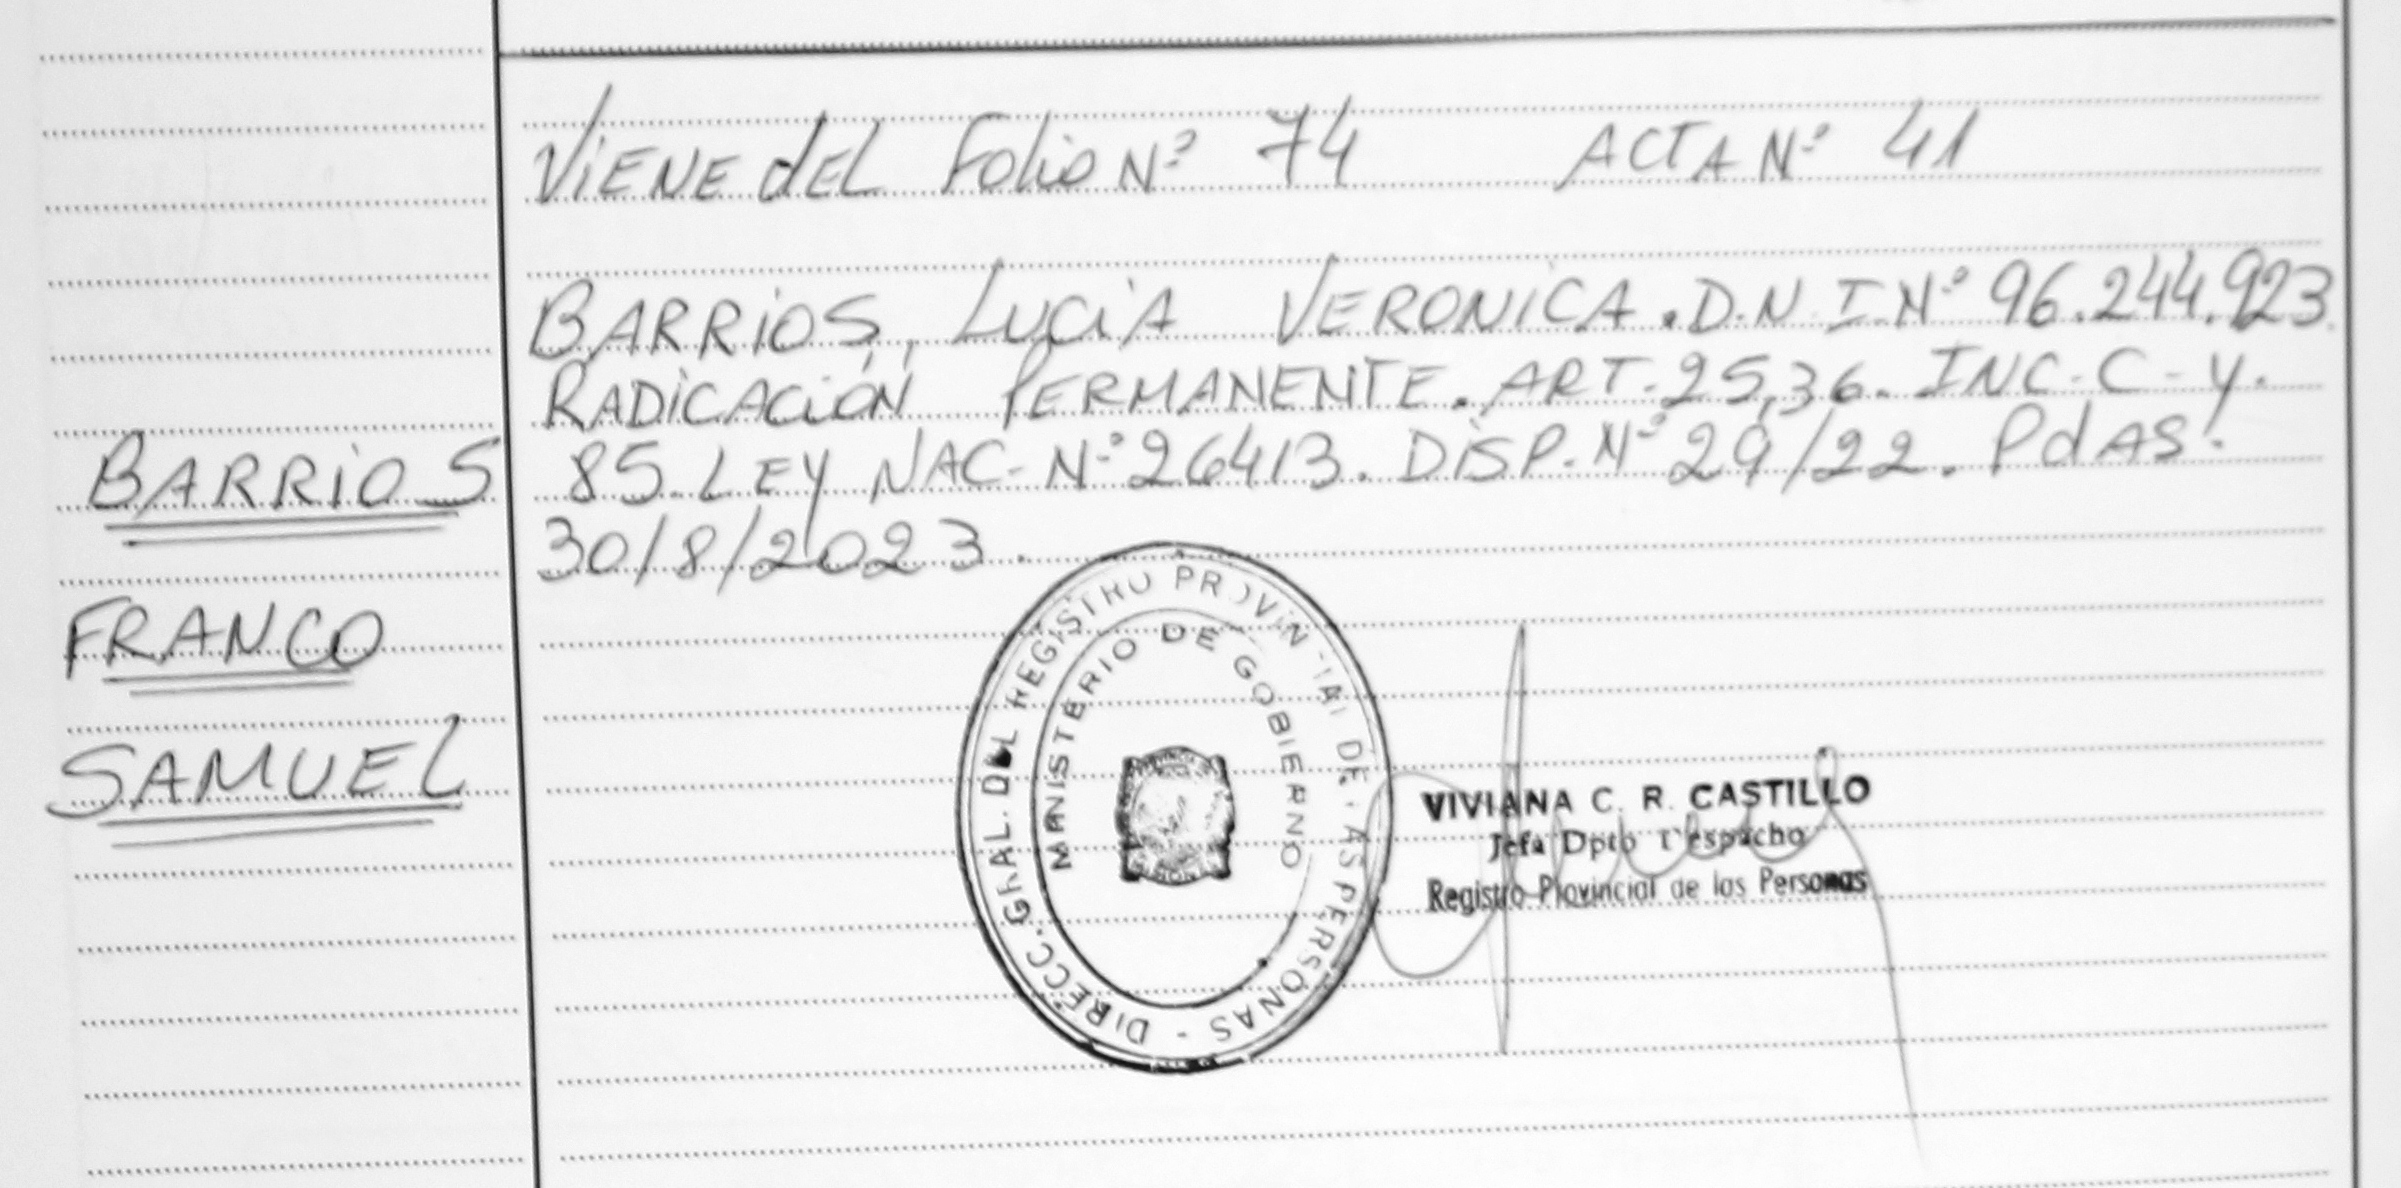 VIENE dEL Folio Nº 74 ACTA Nº 41
BARRIOS, LUCIA VERONICA. D.N.I. Nº 96.244.923.
RADICACIÓN PERMANENTE. ART. 25,36. INC. C - y.
85. LEY NAC. Nº 26413. DISP. Nº 29/22. PdAS.
30/8/2023.
BARRIOS
FRANCO
SAMUEL
DIRECC. GRAL. DEL REGISTRO PROVINCIAL DE LAS PERSONAS -
MINISTERIO DE GOBIERNO
VIVIANA C. R. CASTILLO
Jefa Dpto Despacho
Registro Provincial de las Personas